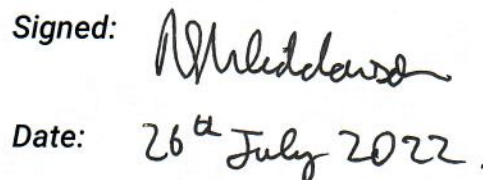 Signed:
Date: 26th July 2022.